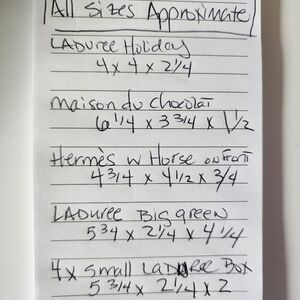 All Sizes Approximate
LADuree Holiday
4 x 4 x 2 1/4
maison du chocolat
6 1/4 x 3 3/4 x 1 1/2
Hermès w Horse on Front
4 3/4 x 4 1/2 x 3/4
LADuree Big green
5 3/4 x 2 1/4 x 4 1/4
4x small LADUREE Box
5 3/4 x 2 1/4 x 2